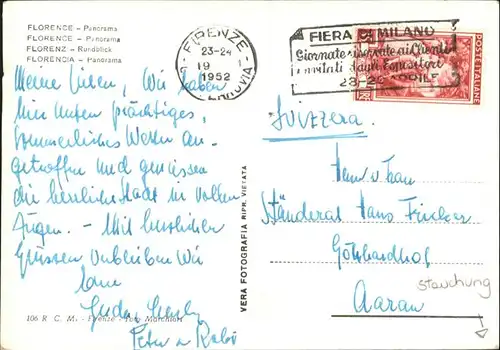 FLORENCE - Panorama
FLORENCE - Panorama
FLORENZ - Rundblick
FLORENCIA - Panorama
FIRENZE
23-24
19
1952
FERROVIA
FIERA MILANO
Giornate riservate ai Clienti
invitati dagli Espositori
23-26 APRILE
POSTE ITALIANE
Meine Lieben, Wir haben
hier unten prächtiges,
sommerliches Wetter an-
getroffen und geniessen
die herrliche Stadt in vollen
Zügen. - Mit herzlichen
Grüssen verbleiben wir
Eure
Peter u. Robi
106 R. C. M. - Firenze
VERA FOTOGRAFIA RIPR. VIETATA
Svizzera.
Herrn u. Frau
Ständerat Hans Fricker
Götzhardhof
Aarau
Stauchung